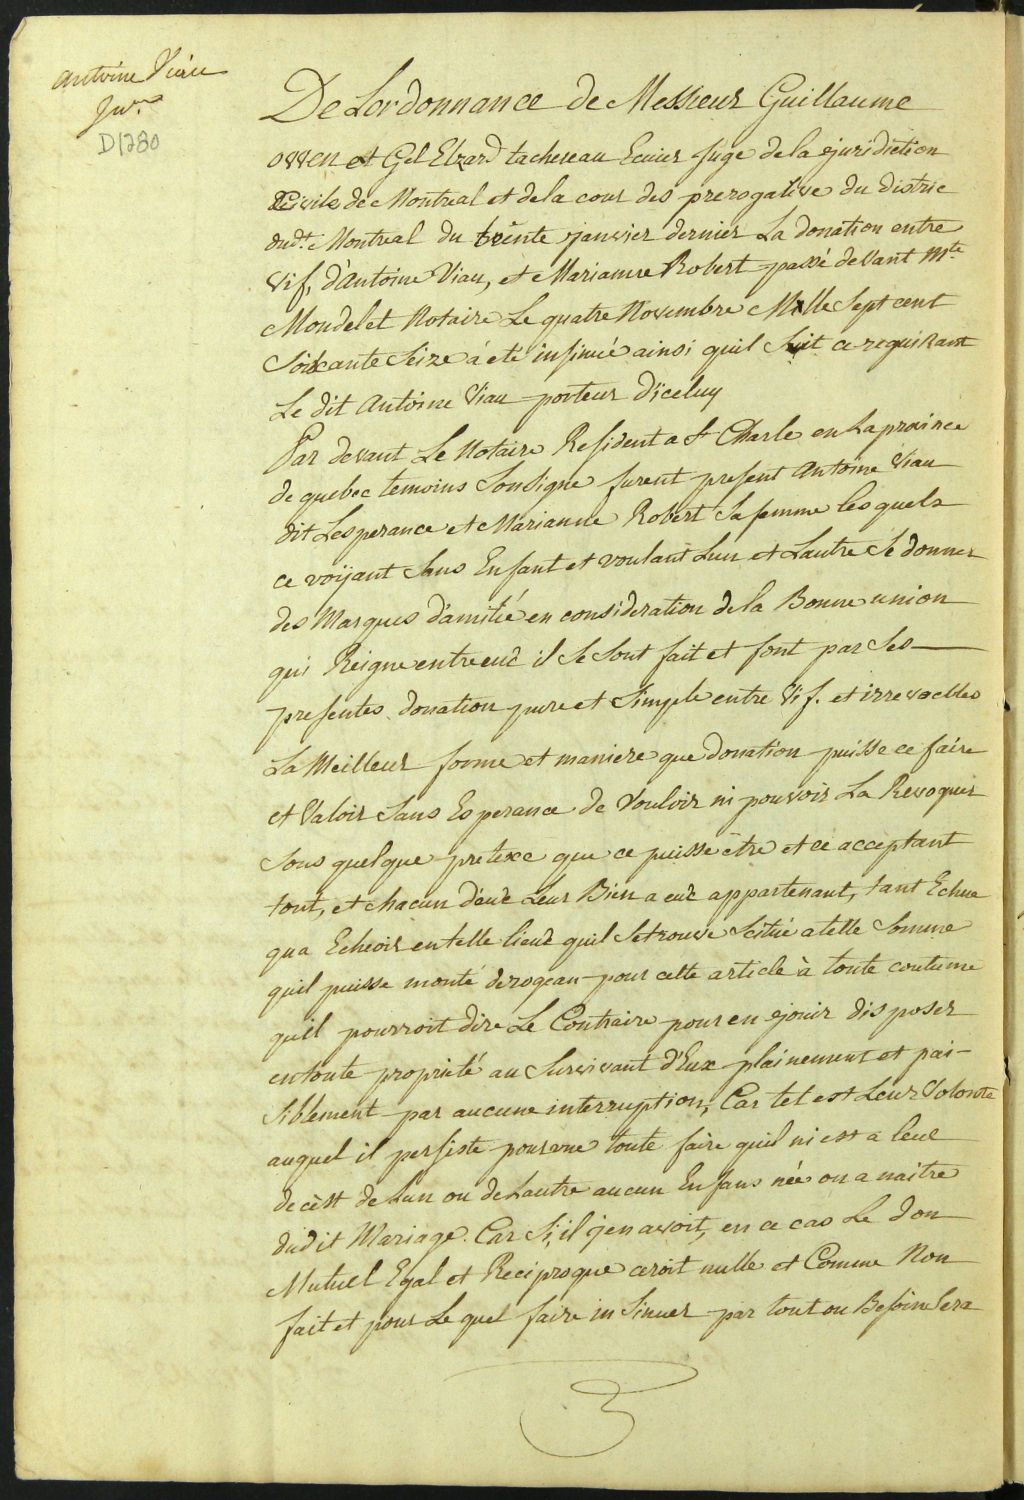 Antoine Viau
Inv.re
D1280
De Lordonnance de Messieur Guillaume
owen et Gel Elzard tachereau Ecuier Juge de la juridiction
Civile de Montreal et de la cour des prerogative du distric
dud.t Montreal du trênte janvier dernier La donation entre
Vif, d'Antoine Viau, et Marianne Robert passé devant M.te
Mondelet Notaire Le quatre Novembre Mille Sept cent
Soixante Seize á eté insinué ainsi quil Suit ce requirant
Le dit Antoine Viau porteur D'iceluy
Par devant Le Notaire Resident a St Charle en La province
de quebec temoins Sousigne furent present Antoine Viau
dit Lesperance et Marianne Robert Sa femme lesquels
ce voÿant Sans Enfant et voulant Lun et Lautre Se donner
des Marques d'amitié en consideration de la Bonne union
qui Reigne entre eux il Se Sont fait et font par Ses
presentes donation pure et Simple entre Vif. et irrevocelles
La Meilleur forme et maniere que donation puisse ce faire
et Valoir Sans Esperance de Vouloir ni pouvoir La Revoquer
Sous quelque pretexe que ce puisse être et ce acceptant
tout, et chacun d'eux Leur Bien a eux appartenant, tant Echue
qua Echeoir en telle lieux quil Se trouve Scitué a telle Somme
quil puisse monté derogean pour cette article à toute coutume
quil pourroit dire Le Contraire pour en jouir disposer
en toute proprieté au Survivant d'Eux plainement et pai-
siblement par aucune interruption, Car tel est Leur Volonté
auquel il persiste pourvue toute faire quil ni est a leur
decèst de Lun ou de Lautre aucun Enfans née ou a naitre
dudit Mariage. Car Si il y en avoit, en ce cas Le don
Mutuel Egal et Reciproque ceroit nulle et Comme Non
fait et pour Le quel faire in Sinuer par tout ou Besoin Sera